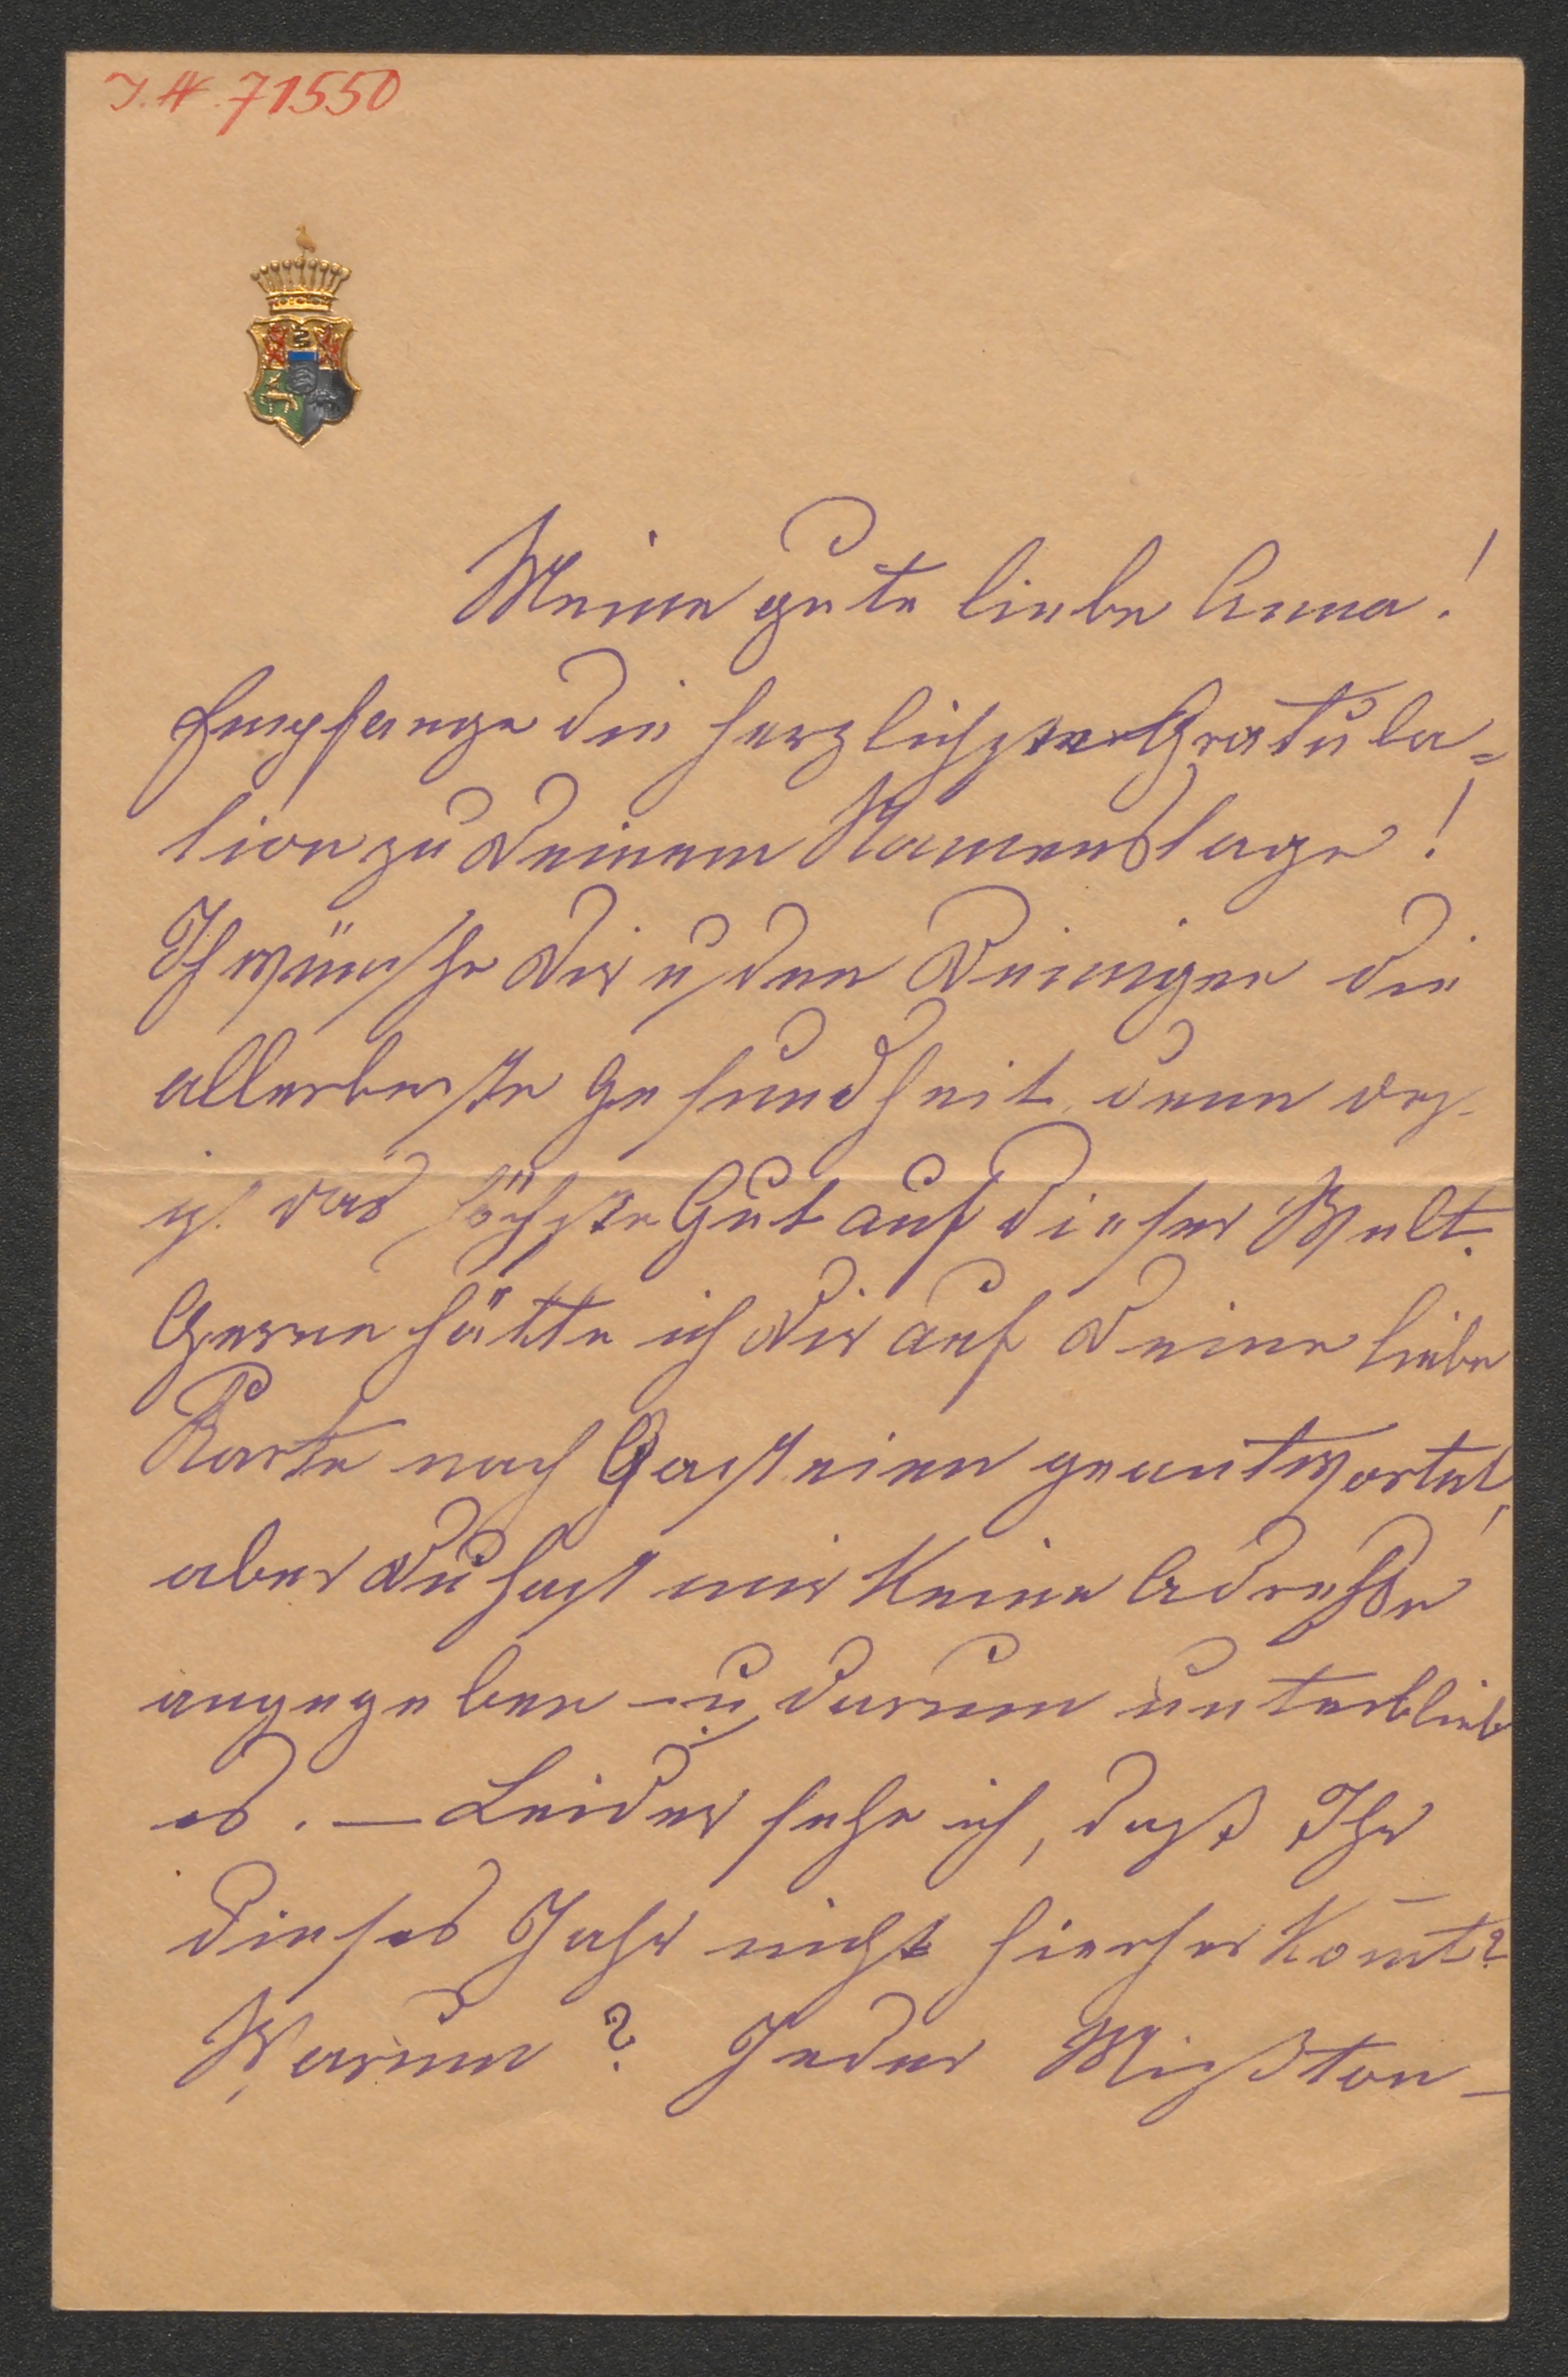 I.N. 71550
Meine gute liebe Anna!
Empfange die herzlichste Gratula=
tion zu Deinem Namenstage!
Ich wünsche Dir u den Deinigen die
allerbeste Gesundheit, denn das
ist das höchste Gut auf dieser Welt.
Gerne hätte ich Dir auf Deine liebe
Karte nach Gasteinen geantwortet,
aber Du hast mir keine Adresse
angegeben – u darum unterblieb
es. — Leider sehe ich, daß Ihr
dieses Jahr nicht hierher kom̄t?
Warum? Jeder Mißton –